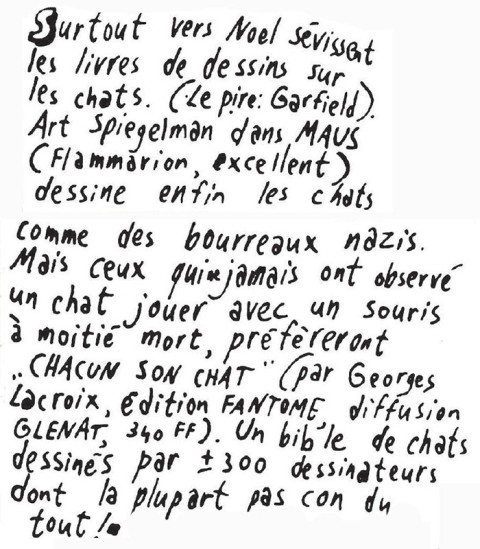 Surtout vers Noel sévissent
les livres de dessins sur
les chats. (Le pire: Garfield).
Art Spiegelman dans MAUS
(Flammarion, excellent)
dessine enfin les chats
comme des bourreaux nazis.
Mais ceux qui jamais ont observé
un chat jouer avec un souris
à moitié mort, préfèreront
„CHACUN SON CHAT" (par Georges
Lacroix, édition FANTOME, diffusion
GLENAT, 340 FF). Un bib'le de chats
dessinés par ±300 dessinateurs
dont la plupart pas con du
tout!